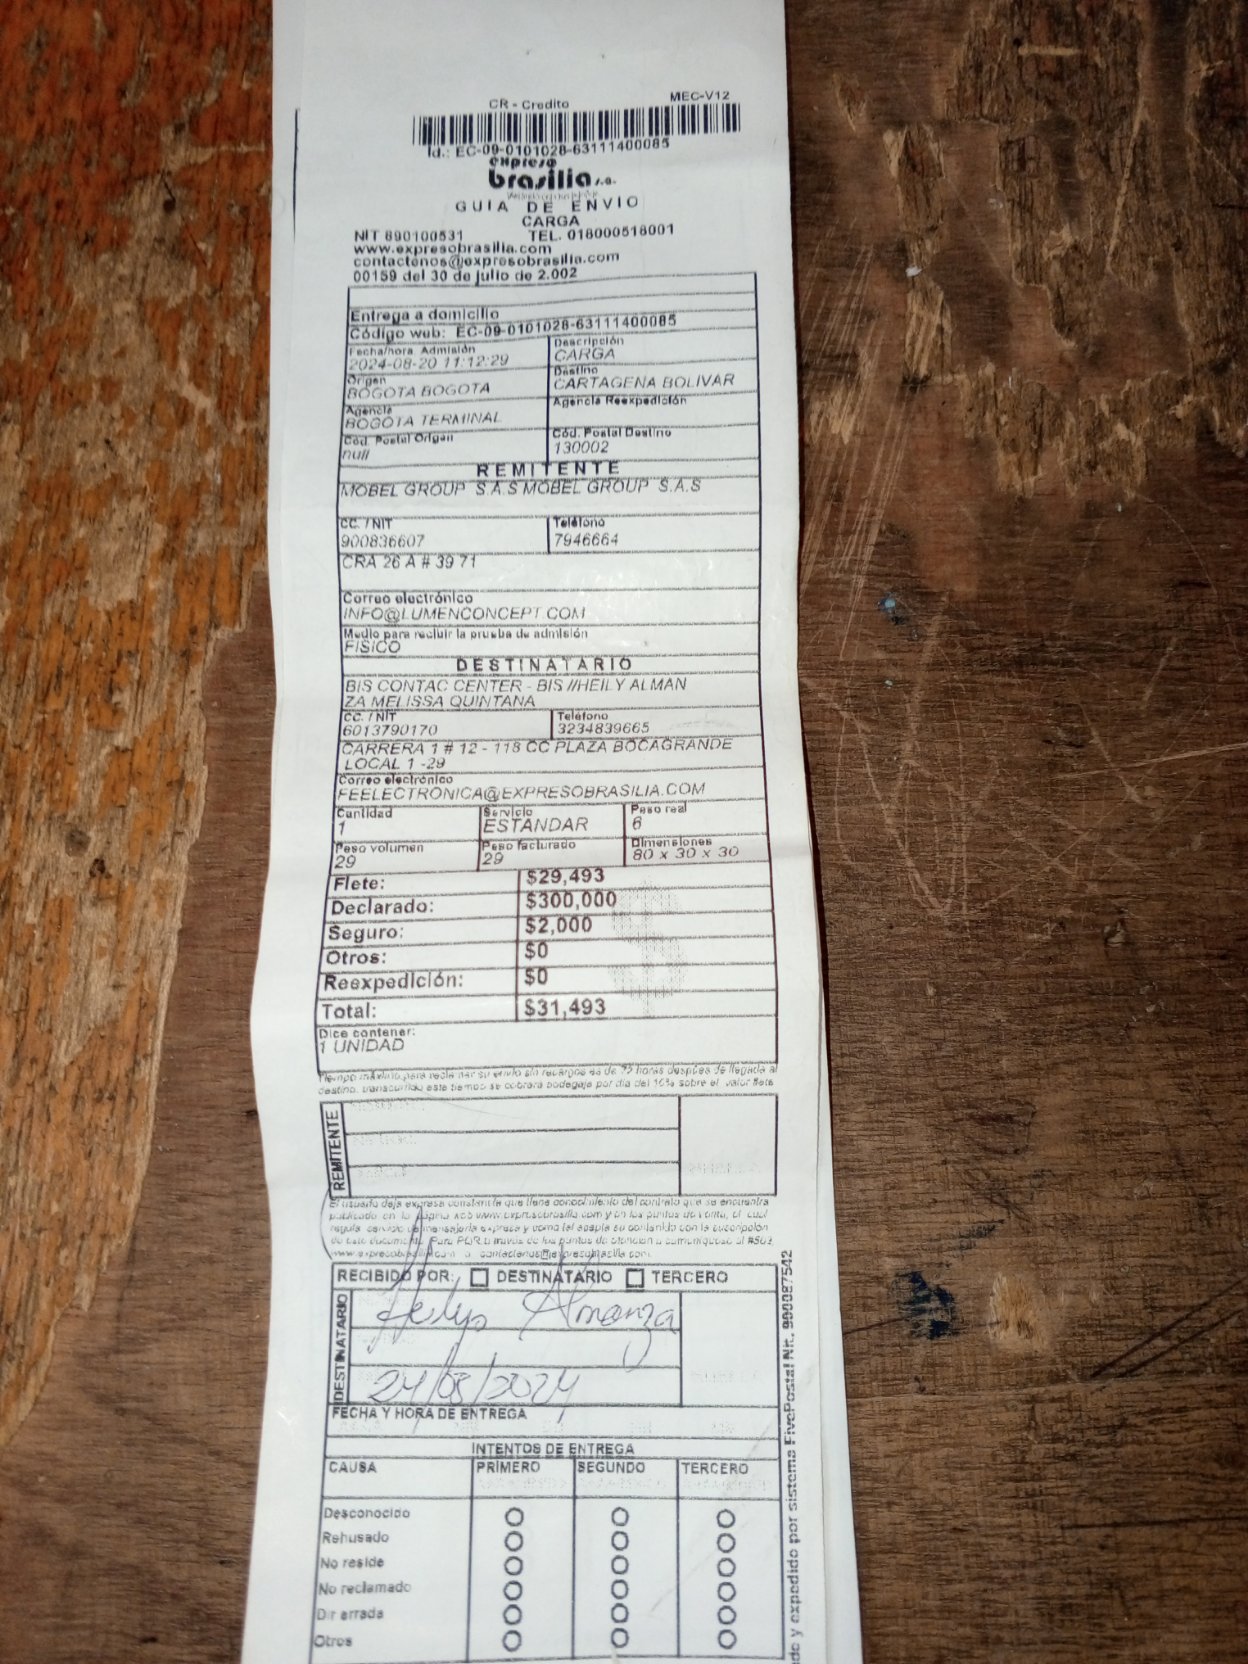 CR - Credito MEC-V12
Id.: EC-09-0101028-63111400085
expreso
brasilia s.a.
GUIA DE ENVIO
CARGA
NIT 890100531 TEL. 018000518001
www.expresobrasilia.com
contactenos@expresobrasilia.com
00159 del 30 de julio de 2.002
Entrega a domicilio
Código web: EC-09-0101028-63111400085
Fecha/hora Admisión Descripción
2024-08-20 11:12:29 CARGA
Origen Destino
BOGOTA BOGOTA CARTAGENA BOLIVAR
Agencia Agencia Reexpedición
BOGOTA TERMINAL
Cód. Postal Origen Cód. Postal Destino
null 130002
REMITENTE
MOBEL GROUP S.A.S MOBEL GROUP S.A.S
CC. / NIT Teléfono
900836607 7946664
CRA 26 A # 39 71
Correo electrónico
INFO@LUMENCONCEPT.COM
Medio para recluir la prueba de admisión
FISICO
DESTINATARIO
BIS CONTAC CENTER - BIS //HEILY ALMAN
ZA MELISSA QUINTANA
CC. / NIT Teléfono
6013790170 3234839665
CARRERA 1 # 12 - 118 CC PLAZA BOCAGRANDE
LOCAL 1 -29
Correo electrónico
FEELECTRONICA@EXPRESOBRASILIA.COM
Cantidad Servicio Peso real
1 ESTANDAR 6
Peso volumen Peso facturado Dimensiones
29 29 80 x 30 x 30
Flete: $29,493
Declarado: $300,000
Seguro: $2,000
Otros: $0
Reexpedición: $0
Total: $31,493
Dice contener:
1 UNIDAD
Tiempo máximo para reclamar su envío sin recargos es de 72 horas después de llegada al
destino, transcurrido este tiempo se cobrará bodegaje por día del 10% sobre el valor flete
REMITENTE
El usuario deja expresa constancia que tiene conocimiento del contrato que se encuentra
publicado en la página web www.expresobrasilia.com y en los puntos de venta, el cual
regula servicio de mensajería expresa y como tal acepta su contenido con la suscripción
de este documento. Para PQR a través de los puntos de atención o comuníquese al #502
www.expresobrasilia.com o contactenos@expresobrasilia.com.
RECIBIDO POR: DESTINATARIO TERCERO
DESTINATARIO
Heilys Almanza
24/08/2024
FECHA Y HORA DE ENTREGA
INTENTOS DE ENTREGA
CAUSA PRIMERO SEGUNDO TERCERO
Desconocido
Rehusado
No reside
No reclamado
Dir errada
Otros
y expedido por sistema FivePostal Nit. 900087542